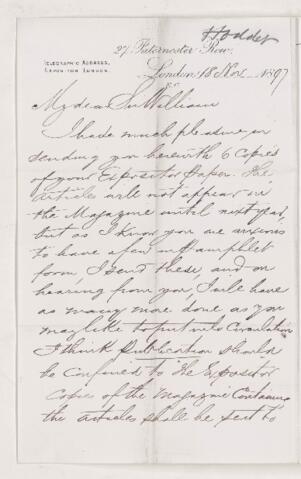 Hodder
27 Paternoster Row,
TELEGRAPHIC ADDRESS,
LONDON.
London 18 Nov 1897
My dear Sir William
I have much pleasure in
sending you herewith 6 Copies
of your Expositor Paper. The
articles will not appear in
the Magazine until next year,
but as I know you are anxious
to have a few in Pamphlet
form, I send these, and on
hearing from you, I will have
as many more done as you
may like to put into Circulation
I think Publication should
be Confined to the Expositor
Copies of the Magazine Containing
the articles shall be sent to